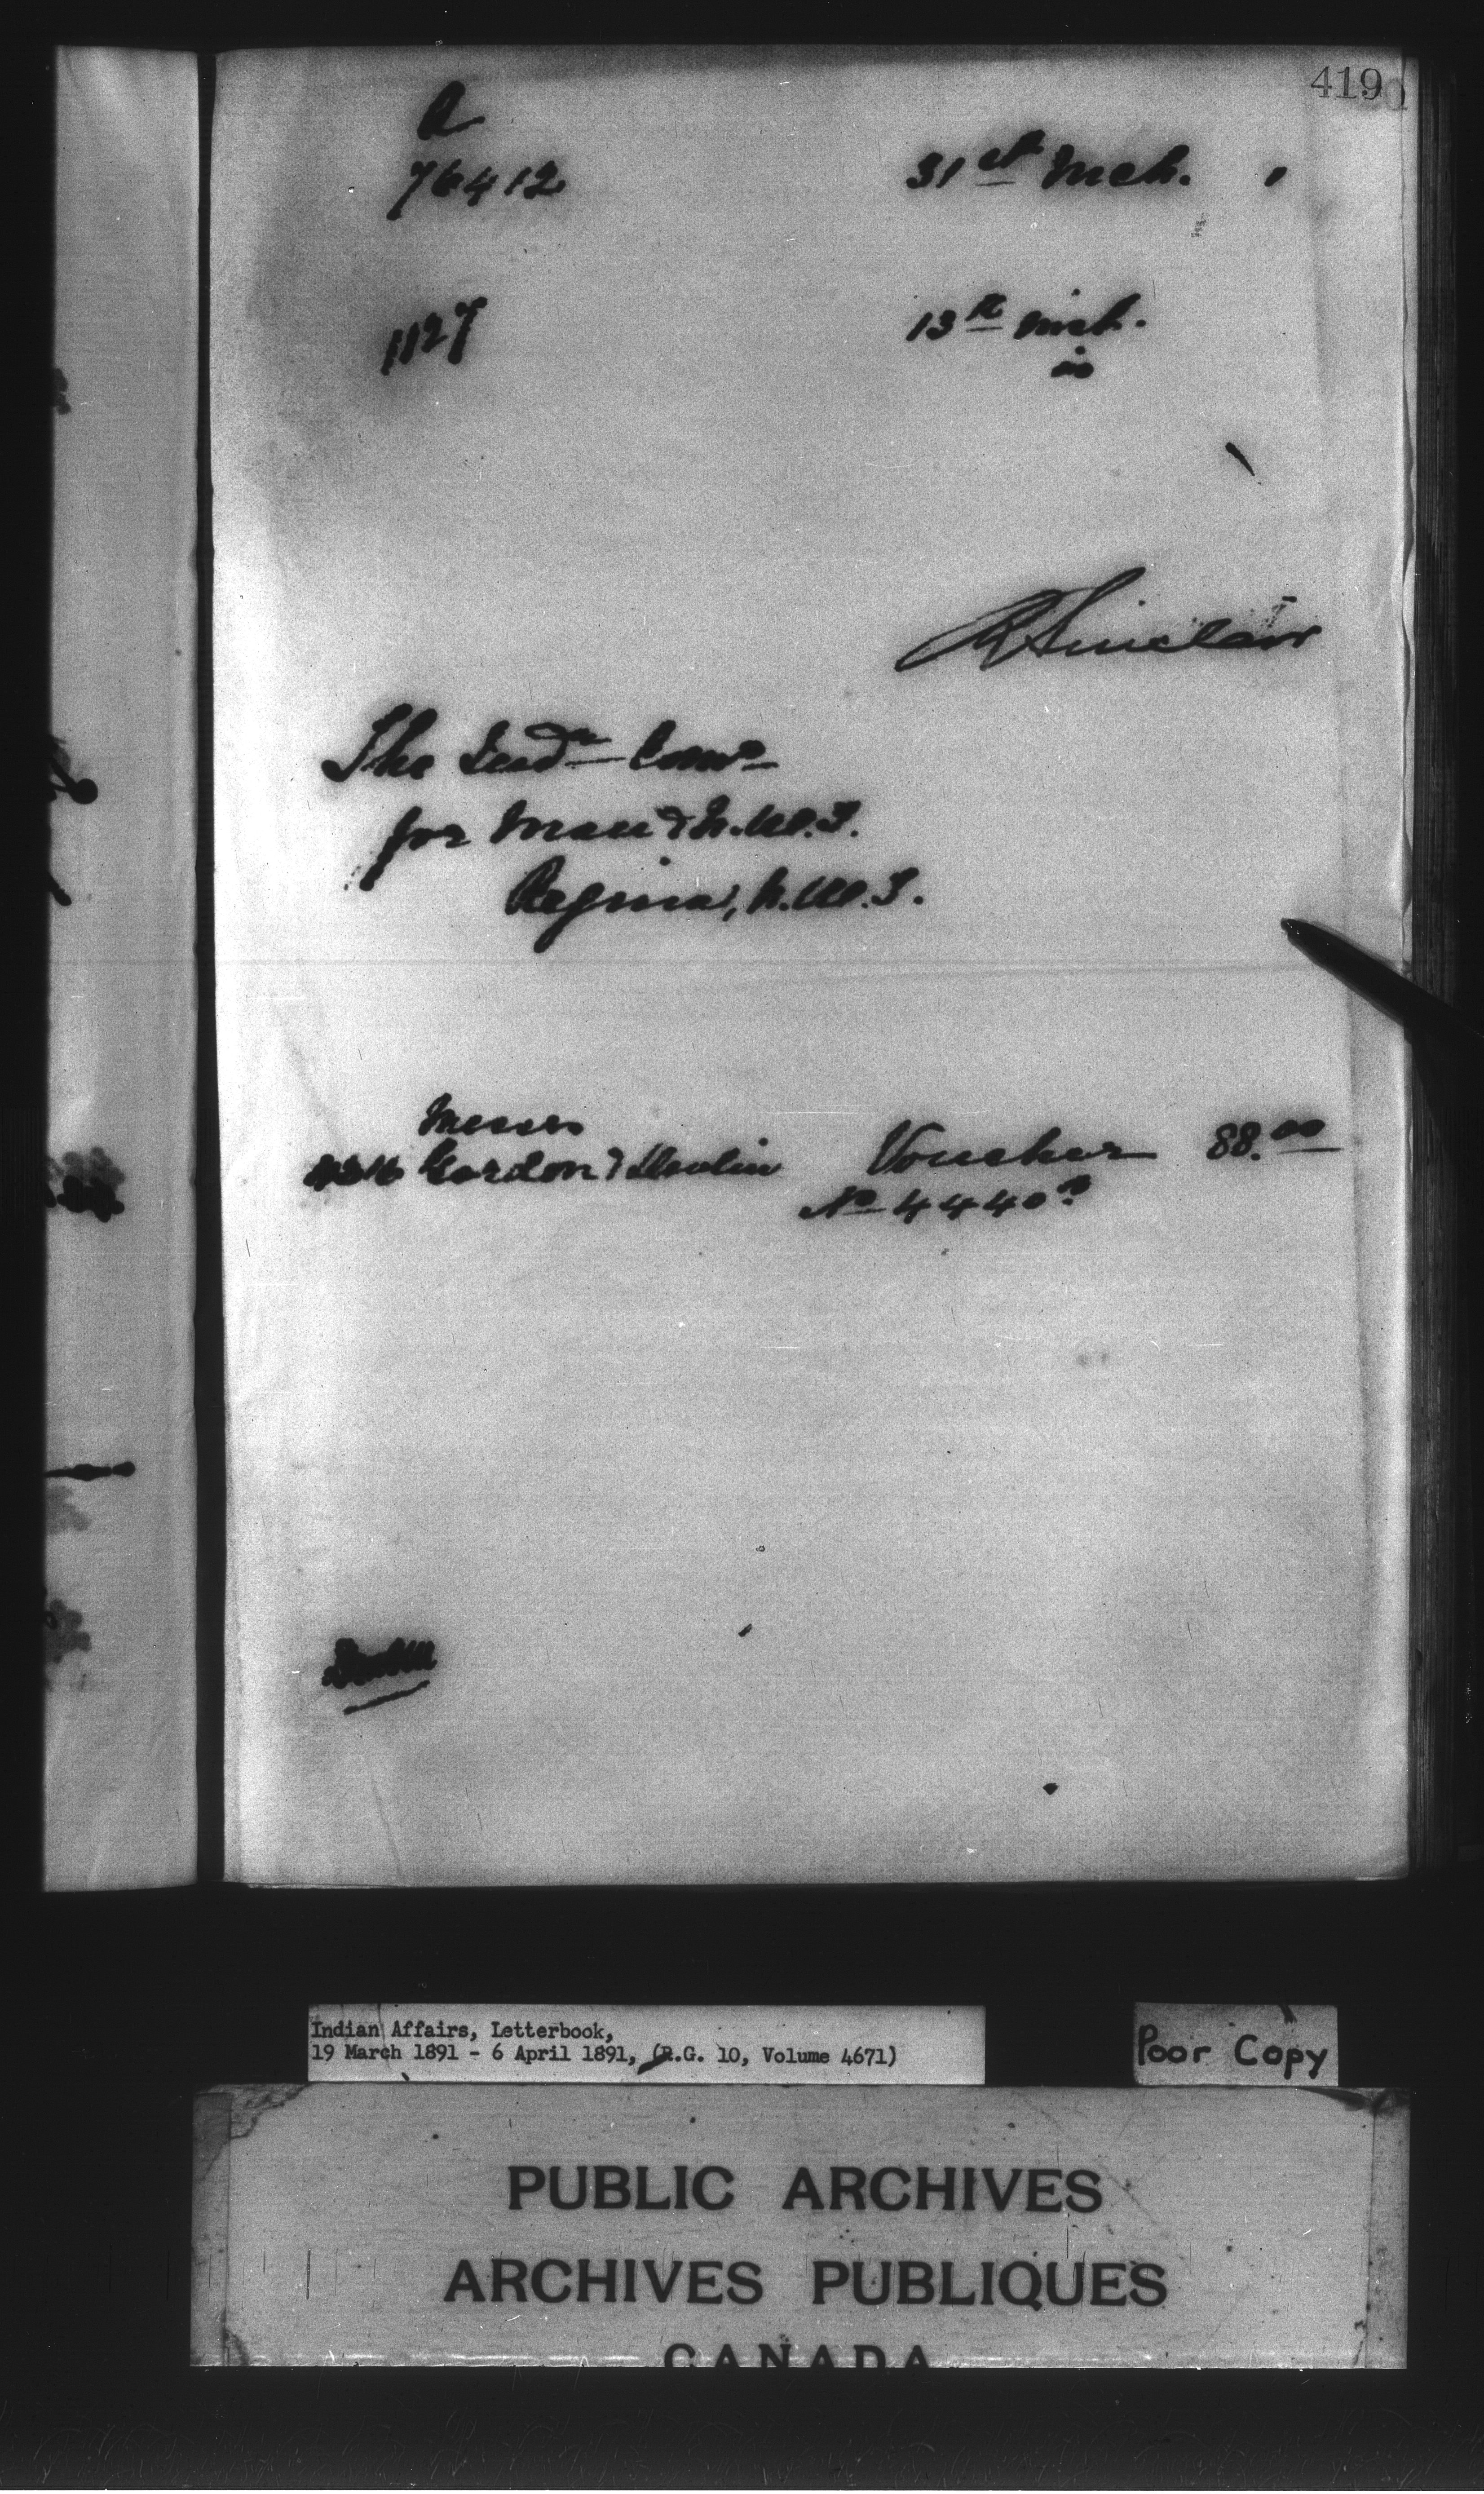 419
A
76412 31st Mch.
1127 13th inst.
is
R Sinclair
The Ind'n Com'r
for Man & N.W.T.
Regina, N.W.T.
Messrs
Gordon & Voucher 88.00
No 4440
Indian Affairs, Letterbook,
19 March 1891 - 6 April 1891, (R.G. 10, Volume 4671)
Poor Copy
PUBLIC ARCHIVES
ARCHIVES PUBLIQUES
CANADA